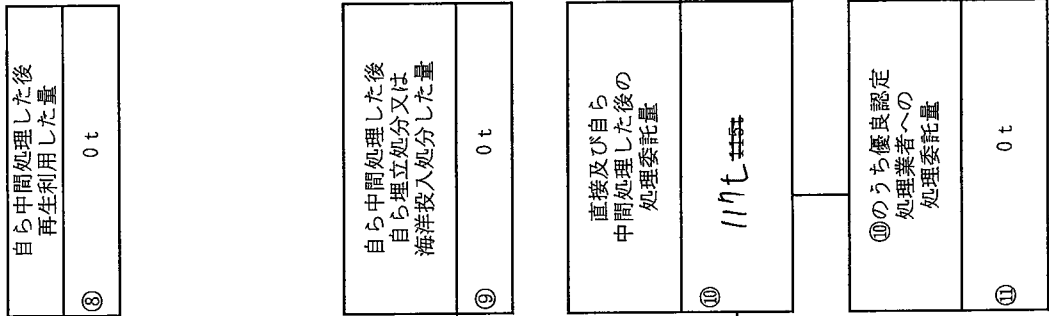 自ら中間処理した後
再生利用した量
⑧ 0 t
自ら中間処理した後
自ら埋立処分又は
海洋投入処分した量
⑨ 0 t
直接及び自ら
中間処理した後の
処理委託量
⑩ 117t 115t
⑩のうち優良認定
処理業者への
処理委託量
⑪ 0 t